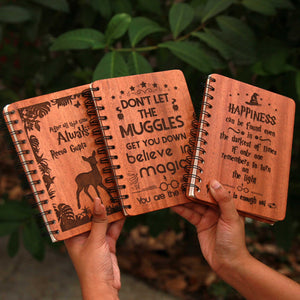 After all this time
Always
Reeva Gupta
DON'T LET
THE
MUGGLES
GET YOU DOWN
believe in
magic
You are the
HAPPINESS
can be found even
in the
darkest of times
if only one
remembers to turn
on the
light